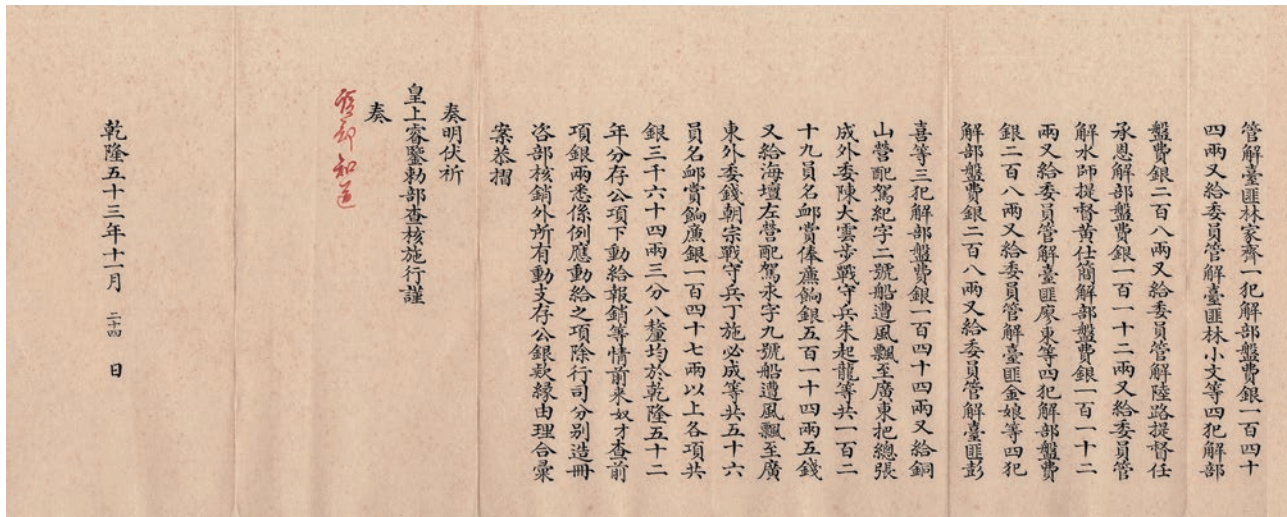 管解臺匪林家齊一犯解部盤費銀一百四十
四兩又給委員管解臺匪林小文等四犯解部
盤費銀二百八兩又給委員管解陸路提督任
承恩解部盤費銀一百一十二兩又給委員管
解水師提督黃仕簡解部盤費銀一百一十二
兩又給委員管解臺匪廖東等四犯解部盤費
銀二百八兩又給委員管解臺匪金娘等四犯
解部盤費銀二百八兩又給委員管解臺匪彭
喜等三犯解部盤費銀一百四十四兩又給銅
山營配駕紀字二號船遭風飄至廣東把總張
成外委陳大雲步戰守兵朱起龍等共一百二
十九員名卹賞俸廉餉銀五百一十四兩五錢
又給海壇左營配駕永字九號船遭風飄至廣
東外委錢朝宗戰守兵丁施必成等共五十六
員名卹賞餉廉銀一百四十七兩以上各項共
銀三千六十四兩三分八釐均於乾隆五十二
年分存公項下動給報銷等情前來奴才查前
項銀兩悉係例應動給之項除行司分別造冊
咨部核銷外所有動支存公銀款緣由理合彙
案恭摺
奏明伏祈
皇上睿鑒勅部查核施行謹
奏
該部知道
乾隆五十三年十一月 二十四 日